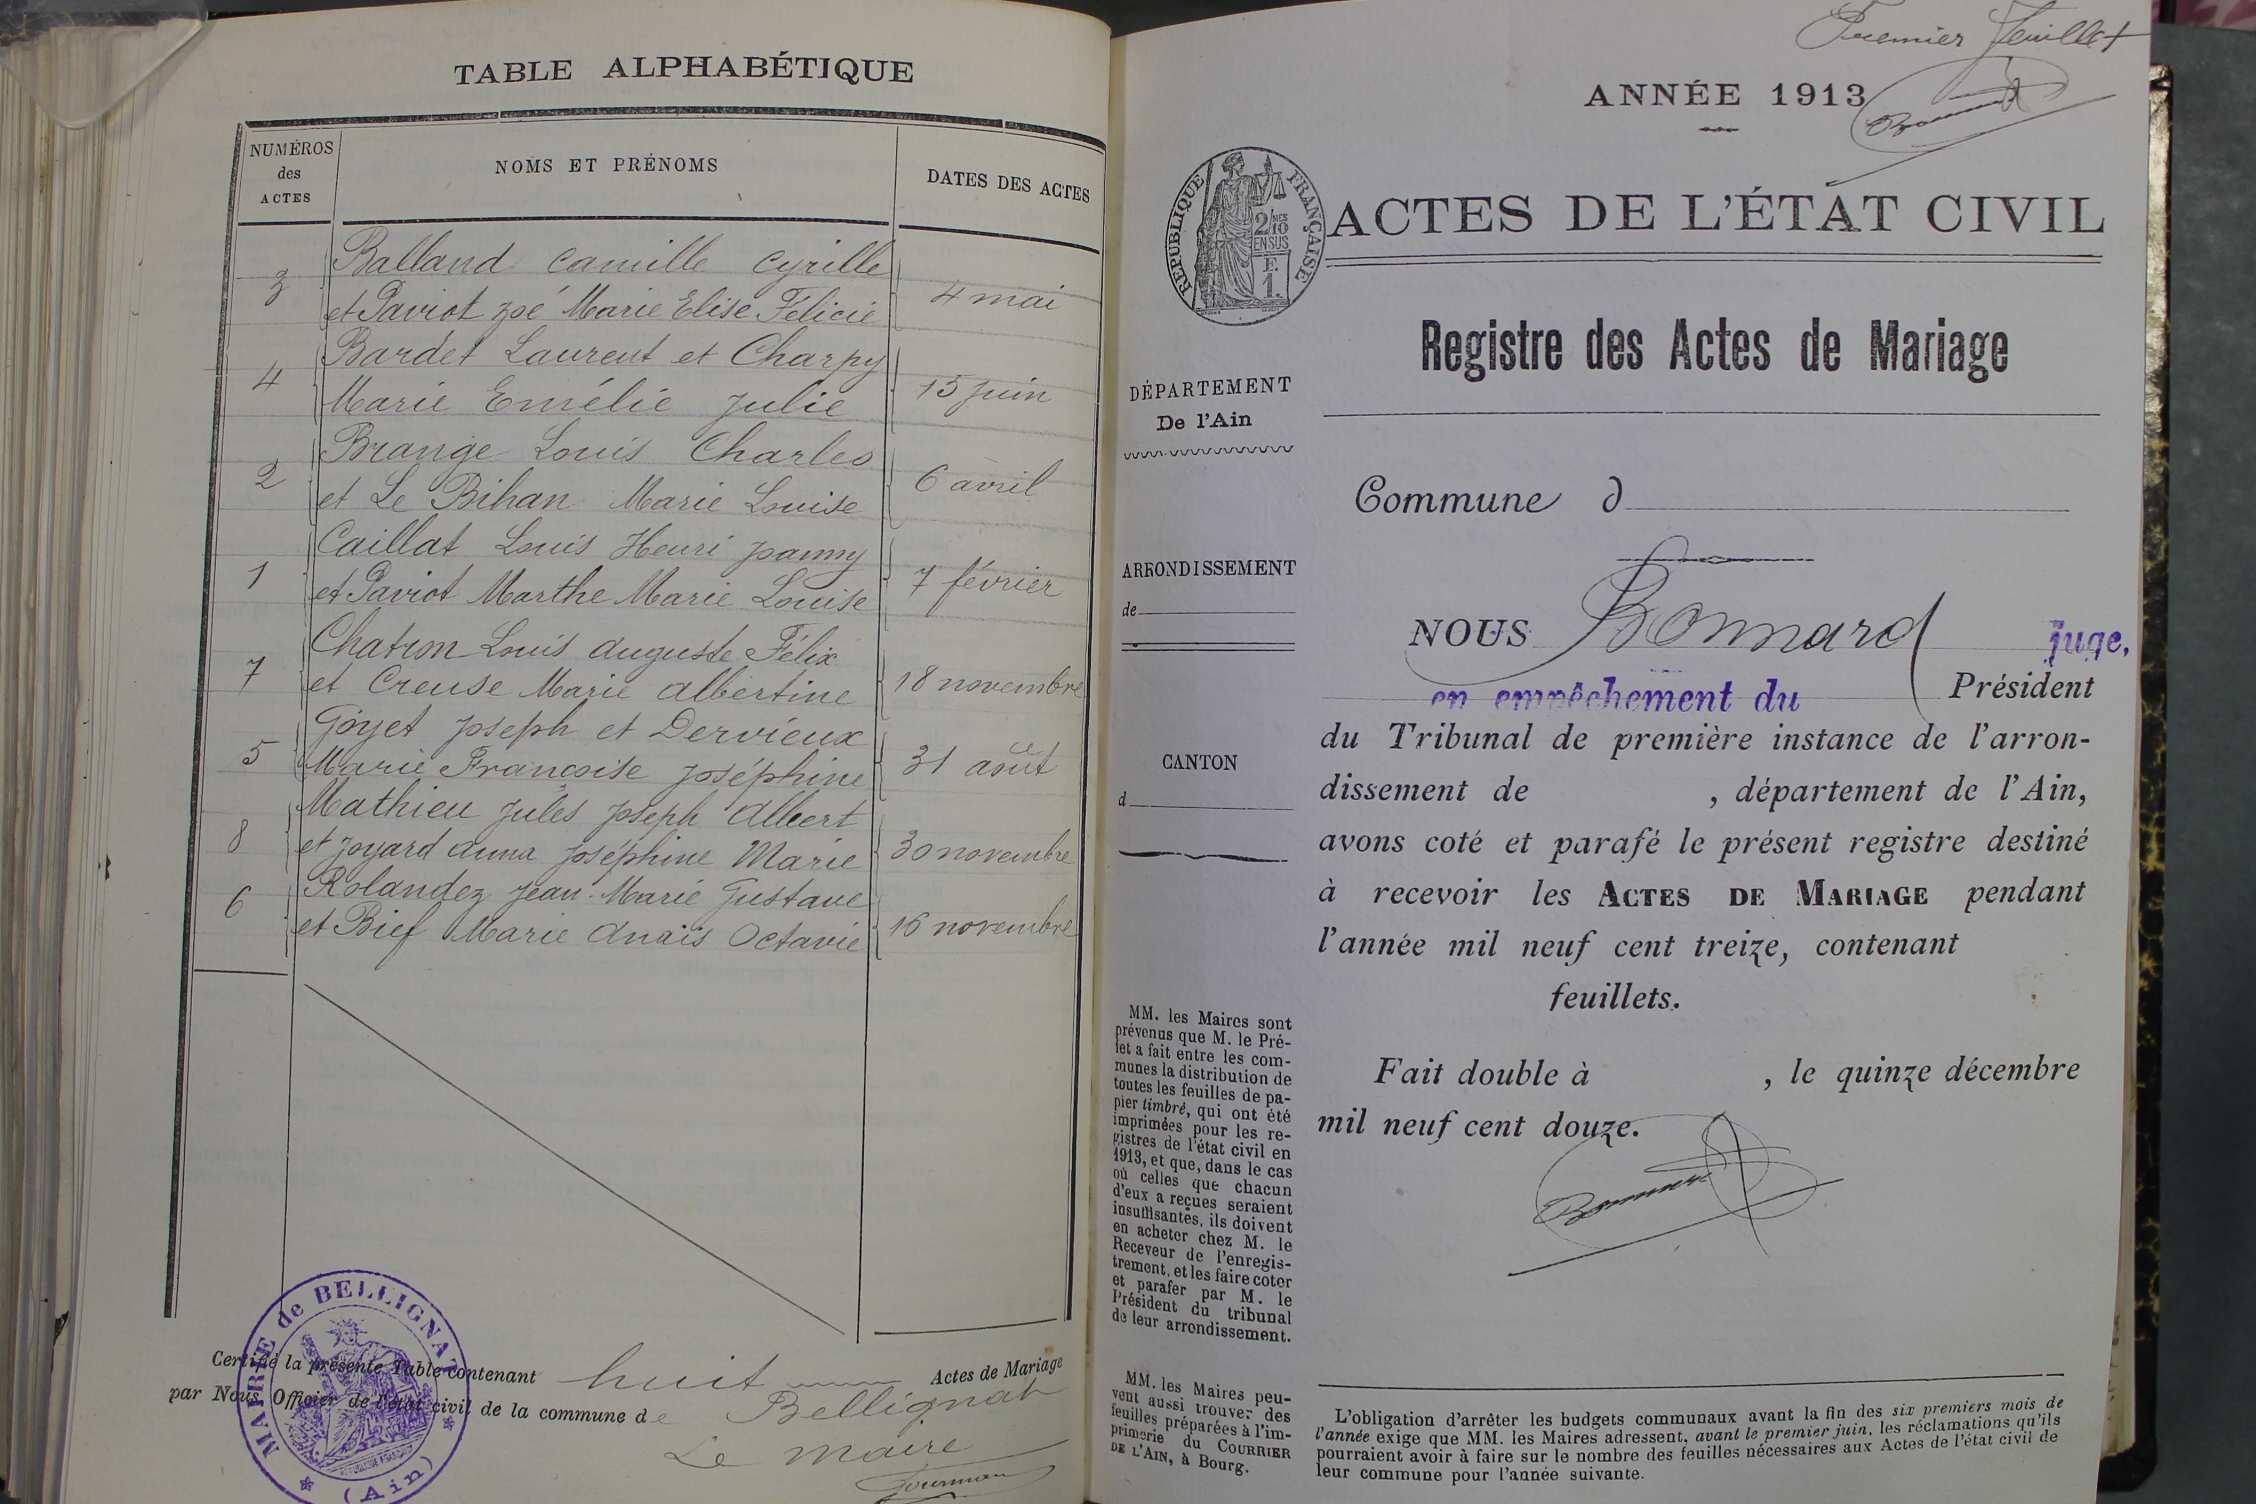 TABLE ALPHABÉTIQUE
NUMÉROS
des
ACTES
NOMS ET PRÉNOMS
DATES DES ACTES
3
Balland Camille Cyrille
et Paviot Zoé Marie Elise Félicie
4 mai
4
Bardet Laurent et Charpy
Marie Emélie Julie
15 juin
2
Brange Louis Charles
et Le Bihan Marie Louise
6 avril
1
Caillat Louis Henri Joanny
et Paviot Marthe Marie Louise
7 février
7
Chatron Louis Auguste Félix
et Creuse Marie Albertine
18 novembre
5
Goyet Joseph et Dervieux
Marie Françoise Joséphine
31 août
8
Mathieu Jules Joseph Albert
et Joyard Anna Joséphine Marie
30 novembre
6
Rolandez Jean Marie Gustave
et Bief Marie Anaïs Octavie
16 novembre
Certifié la présente Table contenant huit Actes de Mariage
par Nous, Officier de l'état civil de la commune de Bellignat
Le Maire
MAIRIE de BELLIGNAT
RÉPUBLIQUE FRANÇAISE
(Ain)
Premier Feuillet
ANNÉE 1913
Bonnard
RÉPUBLIQUE FRANÇAISE
2/10MES
EN SUS
F.
1.
ACTES DE L'ÉTAT CIVIL
Registre des Actes de Mariage
DÉPARTEMENT
De l'Ain
ARRONDISSEMENT
de
CANTON
d
Commune d
NOUS Bonnard juge,
en empêchement du Président
du Tribunal de première instance de l'arron-
dissement de , département de l'Ain,
avons coté et parafé le présent registre destiné
à recevoir les ACTES DE MARIAGE pendant
l'année mil neuf cent treize, contenant
feuillets.
Fait double à , le quinze décembre
mil neuf cent douze.
Bonnard
MM. les Maires sont
prévenus que M. le Pré-
fet a fait entre les com-
munes la distribution de
toutes les feuilles de pa-
pier timbré, qui ont été
imprimées pour les re-
gistres de l'état civil en
1913, et que, dans le cas
où celles que chacun
d'eux a reçues seraient
insuffisantes, ils doivent
en acheter chez M. le
Receveur de l'enregis-
trement, et les faire coter
et parafer par M. le
Président du tribunal
de leur arrondissement.
MM. les Maires peu-
vent aussi trouver des
feuilles préparées à l'im-
primerie du COURRIER
DE L'AIN, à Bourg.
L'obligation d'arrêter les budgets communaux avant la fin des six premiers mois de
l'année exige que MM. les Maires adressent, avant le premier juin, les réclamations qu'ils
pourraient avoir à faire sur le nombre des feuilles nécessaires aux Actes de l'état civil de
leur commune pour l'année suivante.